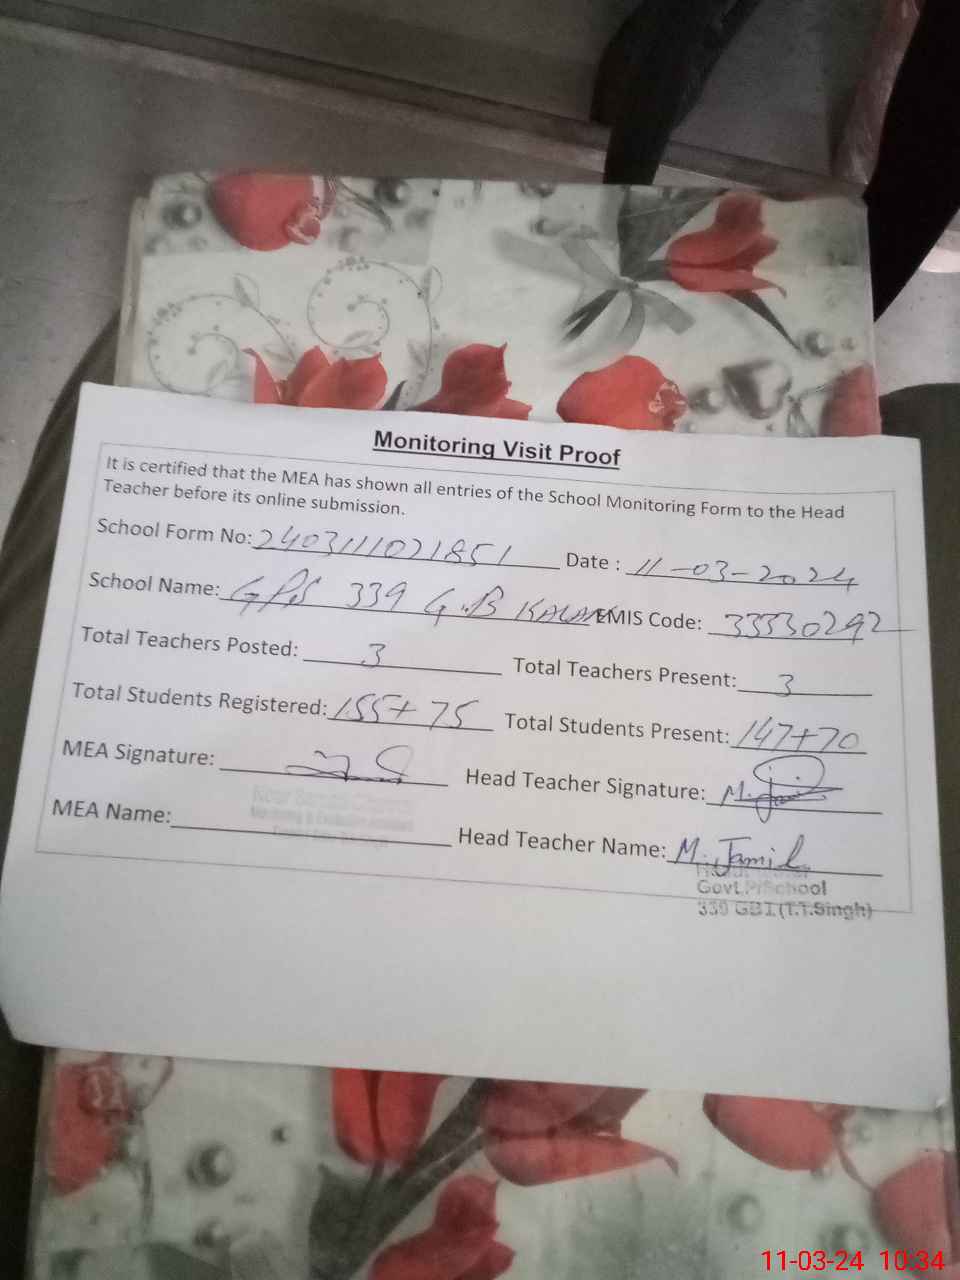 Monitoring Visit Proof
It is certified that the MEA has shown all entries of the School Monitoring Form to the Head
Teacher before its online submission.
School Form No: 2403111021851 Date : 11-03-2024
School Name: GPS 339 G.B KALAN EMIS Code: 33330292
Total Teachers Posted: 3 Total Teachers Present: 3
Total Students Registered: 155+75 Total Students Present: 147+70
MEA Signature: Head Teacher Signature: M. Jamil
MEA Name: Head Teacher Name: M. Jamil
Govt.P/School
339 GB I (T.T.Singh)
11-03-24 10:34